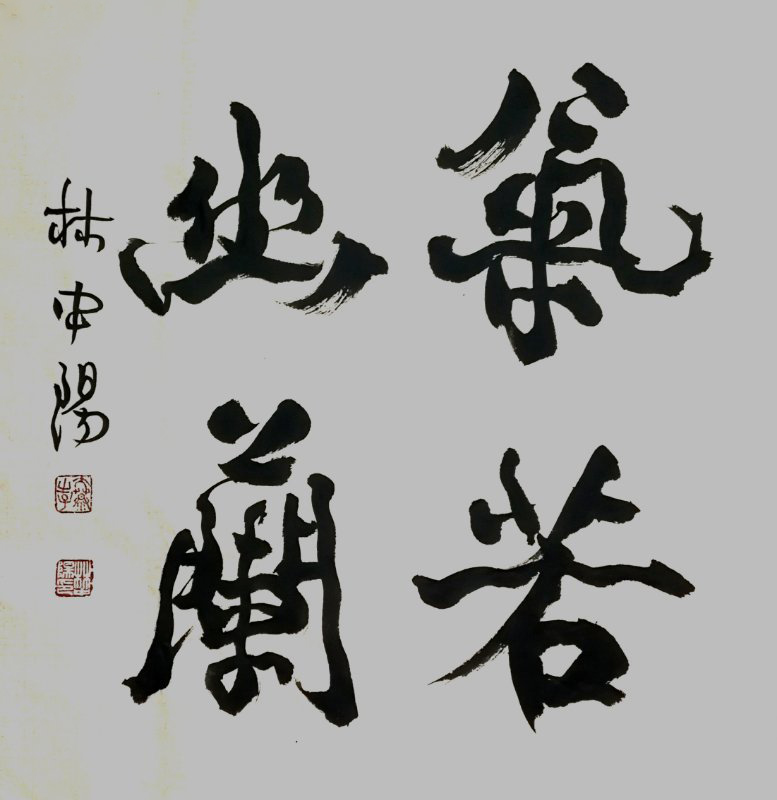 氣若
幽蘭
林申陽